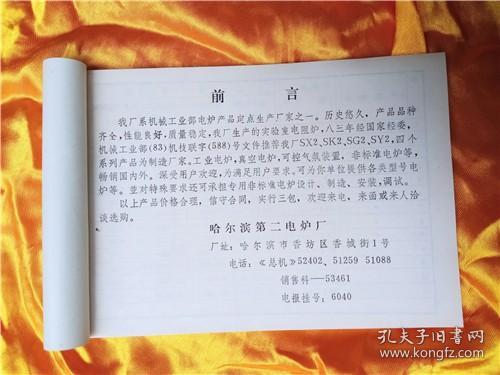 前言
我厂系机械工业部电炉产品定点生产厂家之一。历史悠久，产品品种
齐全，性能良好，质量稳定，我厂生产的实验室电阻炉，八三年经国家经委，
机械工业部(83)机技联字(588)号文件推荐我厂SX2、SK2、SG2、SY2，四个
系列产品为制造厂家。工业电炉，真空电炉，可控气氛装置，非标准电炉等，
畅销国内外。深受用户欢迎，为满足用户要求。可为你单位提供各类型号电
炉等。並对特殊要求还可承担专用非标准电炉设计、制造、安装，调试。
以上产品价格合理，信守合同，实行三包，欢迎来电、来函或来人洽
谈选购。
哈尔滨第二电炉厂
厂址：哈尔滨市香坊区香城街1号
电话：《总机》52402、51259 51088
销售科—53461
电报挂号：6040
孔夫子旧书网
www.kongfz.com